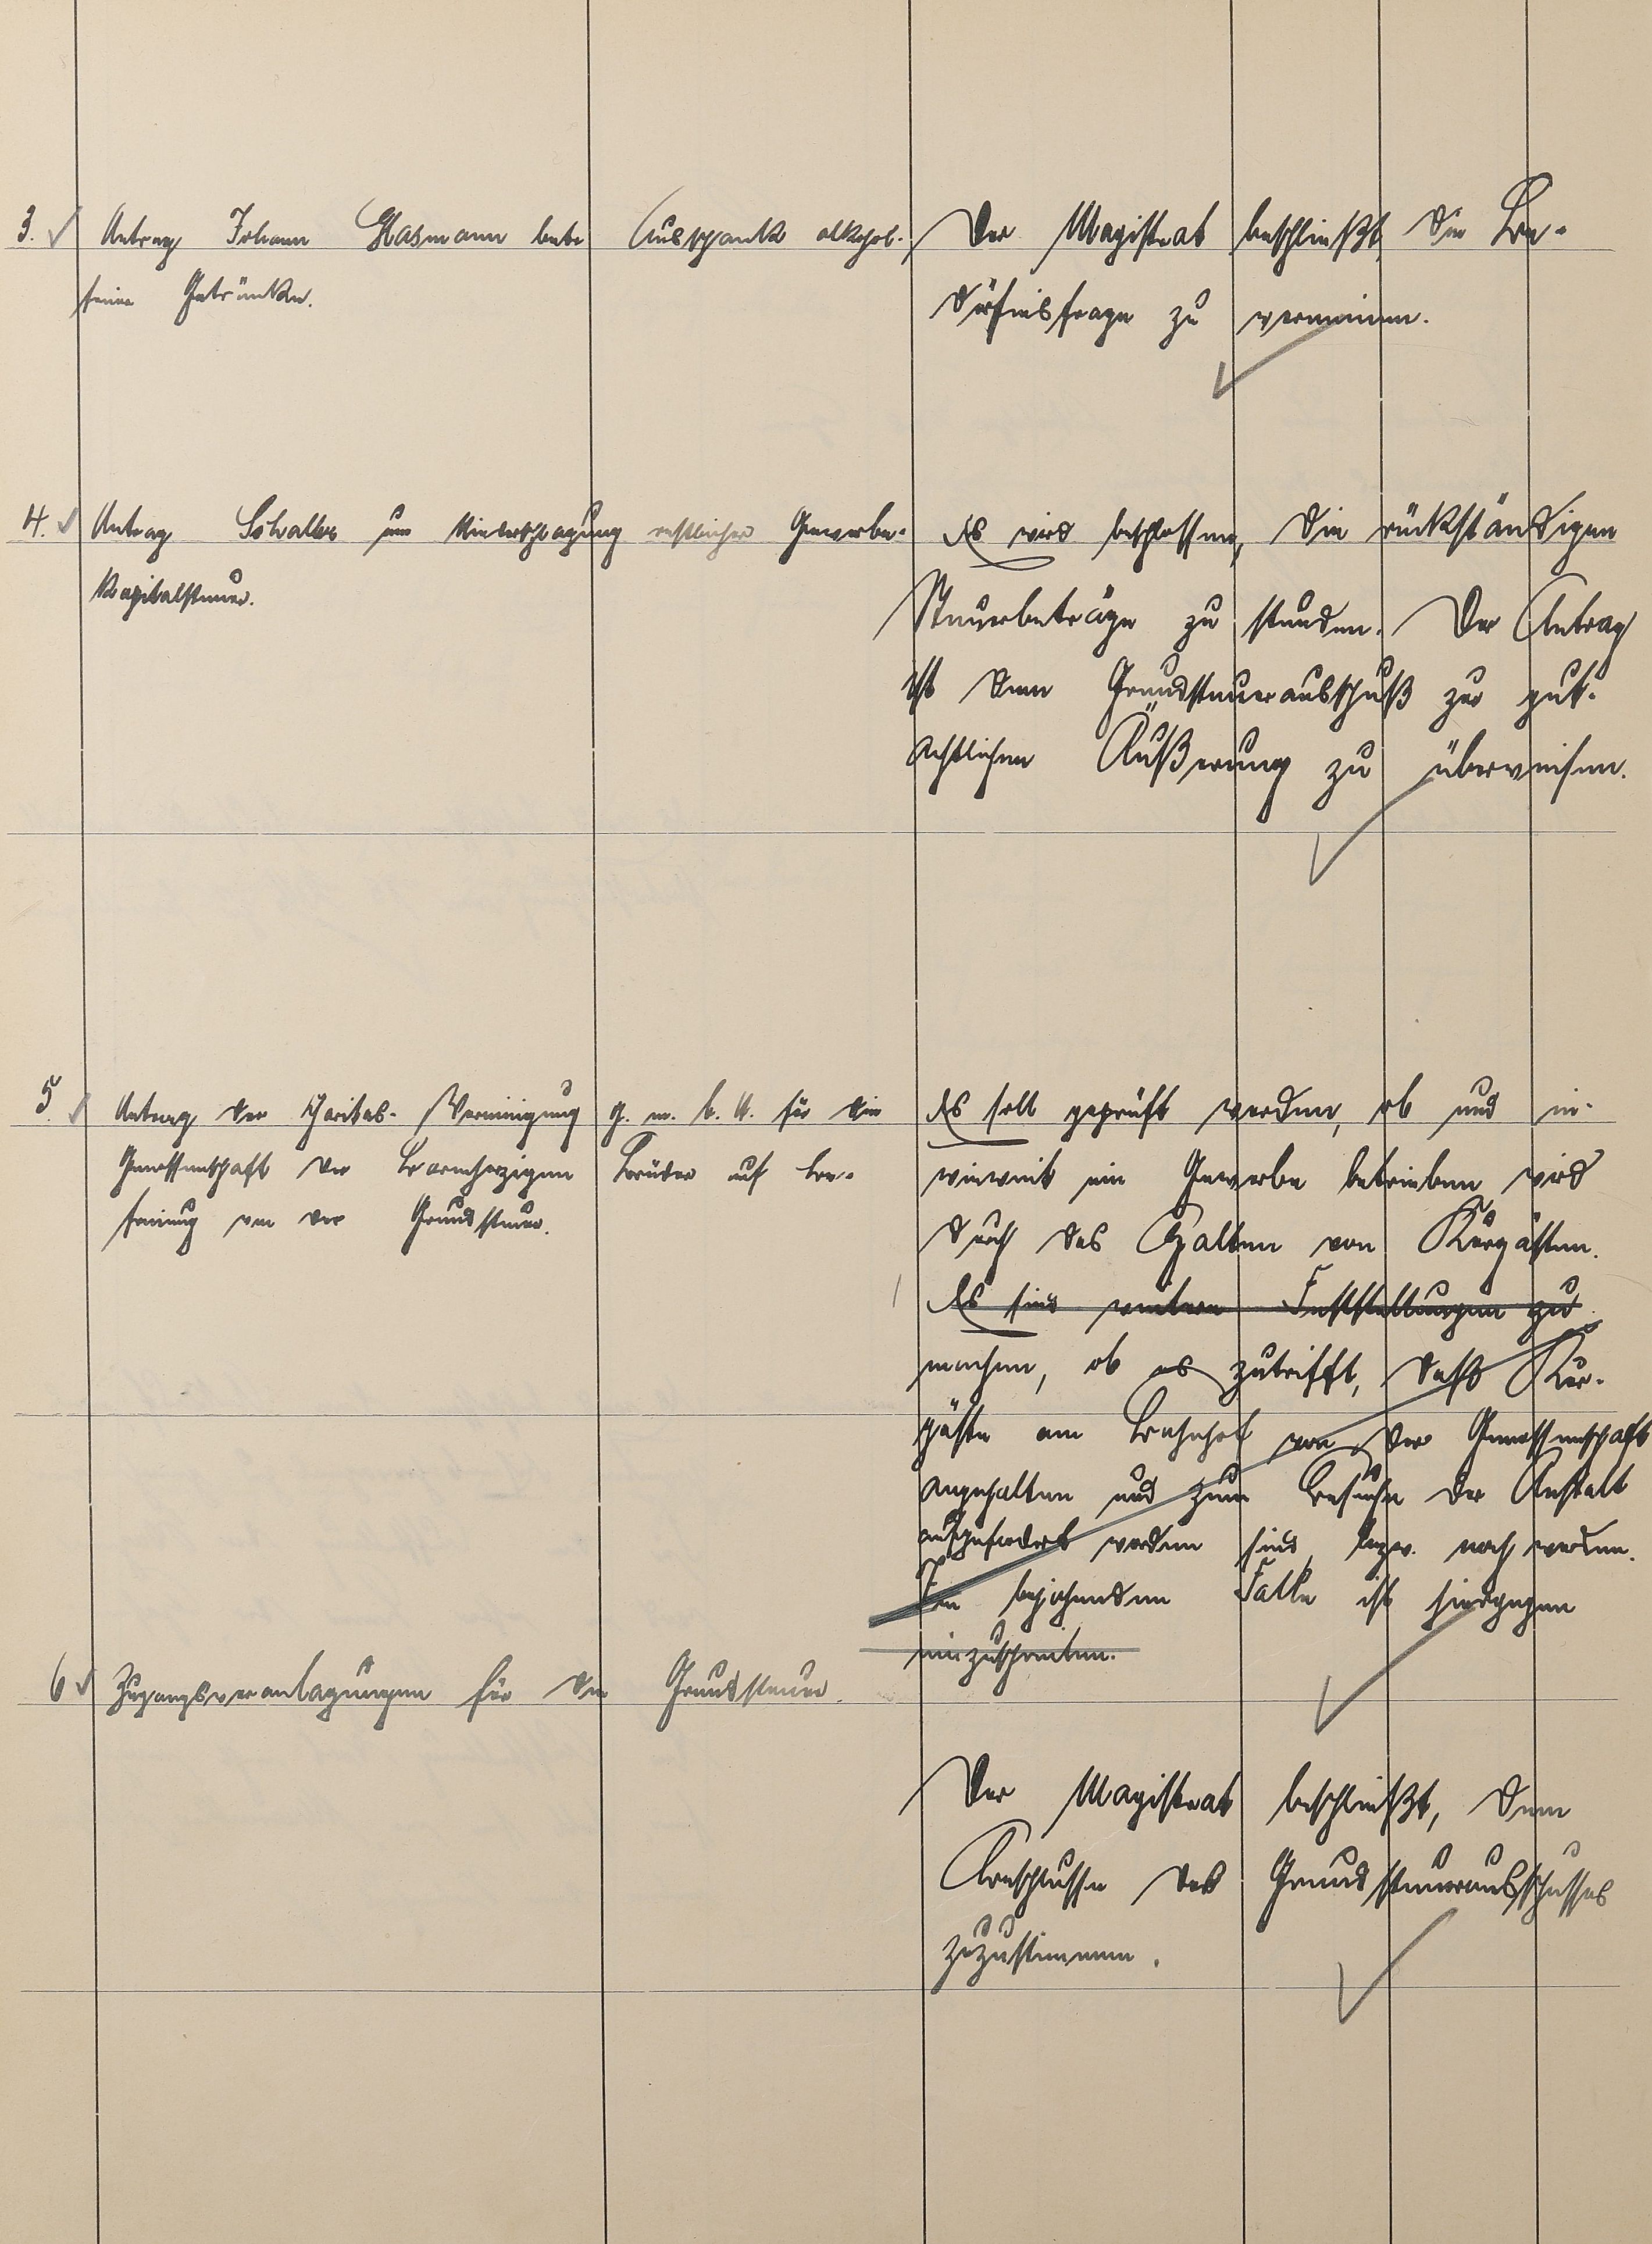 3. Antrag Johann Glasmann betr. Ausschank alkohol-
freier Getränke.
Der Magistrat beschließt, die Be-
dürfnisfrage zu verneinen.
4. Antrag Schaller um Niederschlagung restlicher Gewerbe-
kapitalsteuer.
Es wird beschlossen, die rückständigen
Steuerbeträge zu stunden. Der Antrag
ist dem Grundsteuerausschuß zur gut-
achtlichen Äußerung zu überweisen.
5. Antrag der Charitas-Vereinigung G. m. b. H. für die
Genossenschaft der Barmherzigen Brüder auf Be-
freiung von der Grundsteuer.
Es soll geprüft werden, ob und in-
wieweit ein Gewerbe betrieben wird
durch das Halten von Kurgästen.
Es sind weitere Feststellungen zu
machen, ob es zutrifft, daß Kur-
gäste am Bahnhof von der Genossenschaft
angehalten und zum Besuche der Anstalt
aufgefordert worden sind, bezw. noch werden.
Im bejahenden Falle ist hiergegen
einzuschreiten.
6 Zugangsveranlagungen für die Grundsteuer.
Der Magistrat beschließt, dem
Beschlusse des Grundsteuerausschusses
zuzustimmen.